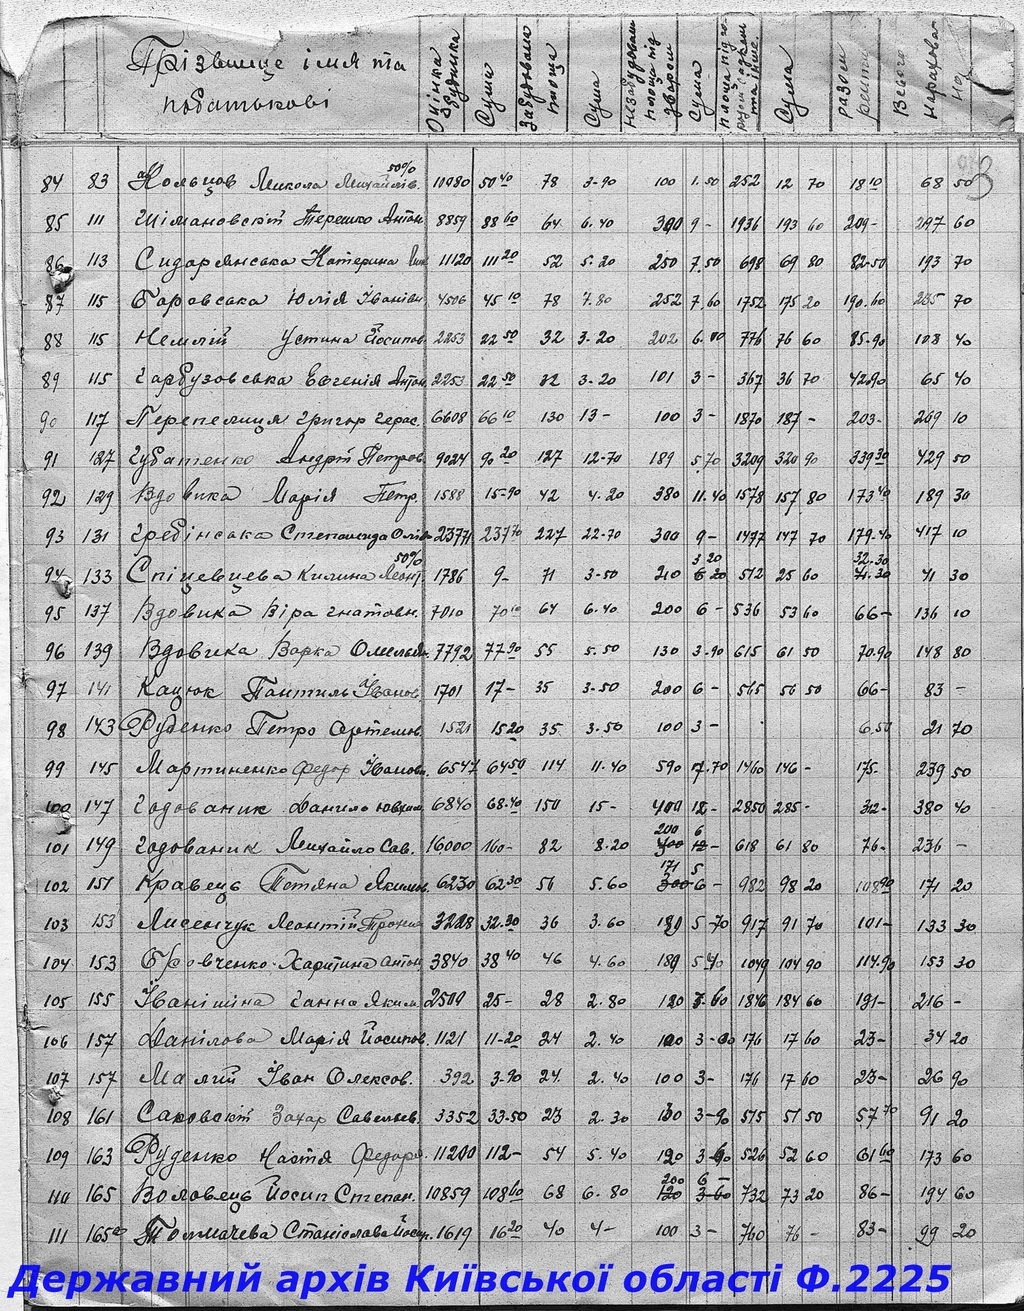 Прізвище імя та побатькові Оцінка будинка Сума Забудована площа Сума Незабудована площа під двором Сума Площа під Сума разом Всього Нарахова-но
3
84 83 Кольцов Микола Михайлів. 50% 10080 50 40 78 3-90 100 1.50 252 12 70 18 10 68 50
85 111 Шімановскій Терешко Антон. 8859 88 60 64 6.40 300 9- 1936 193 60 209- 297 60
86 113 Сидарянська Катерина 11120 111 20 52 5.20 250 7.50 698 69 80 82-50 193 70
87 115 Баровська Юлія Іванівн. 4506 45 10 78 7.80 252 7.60 1752 175 20 190.60 235 70
88 115 Немлій Устина Йосипов. 2253 22 50 32 3-20 202 6. 776 76 60 85-90 108 40
89 115 Гарбузовська Евгенія Антон. 2253 22 50 32 3-20 101 3- 367 36 70 42.90 65 40
90 117 Перепелиця Григор Герас. 6608 66 10 130 13- 100 3- 1870 187- 203- 269 10
91 127 Губатенко Андрій Петров. 9024 90 20 127 12-70 189 5.70 3209 320 90 339 30 429 50
92 129 Вдовика Марія Петр. 1588 15-90 42 4.20 380 11.40 1578 157 80 173 40 189 30
93 131 Гребінська Степанида 23771 237 70 227 22-70 300 9- 1477 147 70 179.40 417 10
94 133 Спіцевцева Килина Леонт. 50% 1786 9- 71 3-50 210 3 20 512 25 60 32.30 41 30
95 137 Вдовика Віра Гнатовн. 7010 70 10 64 6.40 200 6- 536 53 60 66- 136 10
96 139 Вдовика Варка Омельян. 7792 77 90 55 5.50 130 3-90 615 61 50 70.90 148 80
97 141 Кацюк Пантиль Іванов. 1701 17- 35 3-50 200 6- 565 56 50 66- 83-
98 143 Руденко Петро Артемов. 1521 15 20 35 3.50 100 3- 6.50 21 70
99 145 Мартиненко Федор Іванов. 6547 64 50 114 11.40 590 17.70 1460 146- 175- 239 50
100 147 Годованик Данило Юхим. 6840 68.40 150 15- 400 12- 2850 285- 312- 380 40
101 149 Годованик Михайло Сав. 16000 160- 82 8.20 200 6 618 61 80 76- 236-
102 151 Кравець Тетяна Якимов. 6230 62 30 56 5.60 171 5 982 98 20 108 90 171 20
103 153 Лисенчук Леонтій 3228 32.30 36 3.60 189 5-70 917 91 70 101- 133 30
104 153 Бровченко Харитина Антон. 3840 38 40 46 4.60 189 5 1049 104 90 114.90 153 30
105 155 Іванішина Ганна Яким. 2509 25- 28 2.80 120 3.60 1846 184 60 191- 216-
106 157 Данілова Марія Йосипов. 1121 11-20 24 2.40 100 3- 176 17 60 23- 34 20
107 157 Малій Іван Олексов. 392 3-90 24 2.40 100 3- 176 17 60 23- 26 90
108 161 Саковскій Захар Савельев. 3352 33-50 23 2.30 130 3-90 575 57 50 57 70 91 20
109 163 Руденко Настя Федоро. 11200 112- 54 5.40 120 3.60 526 52 60 61 60 173 60
110 165 Воловець Йосип Степан. 10859 108 60 68 6.80 200 6- 732 73 20 86- 194 60
111 165а Толмачева Станіслава Йосип. 1619 16 20 40 4- 100 3- 760 76- 83- 99 20
Державний архів Київської області Ф.2225